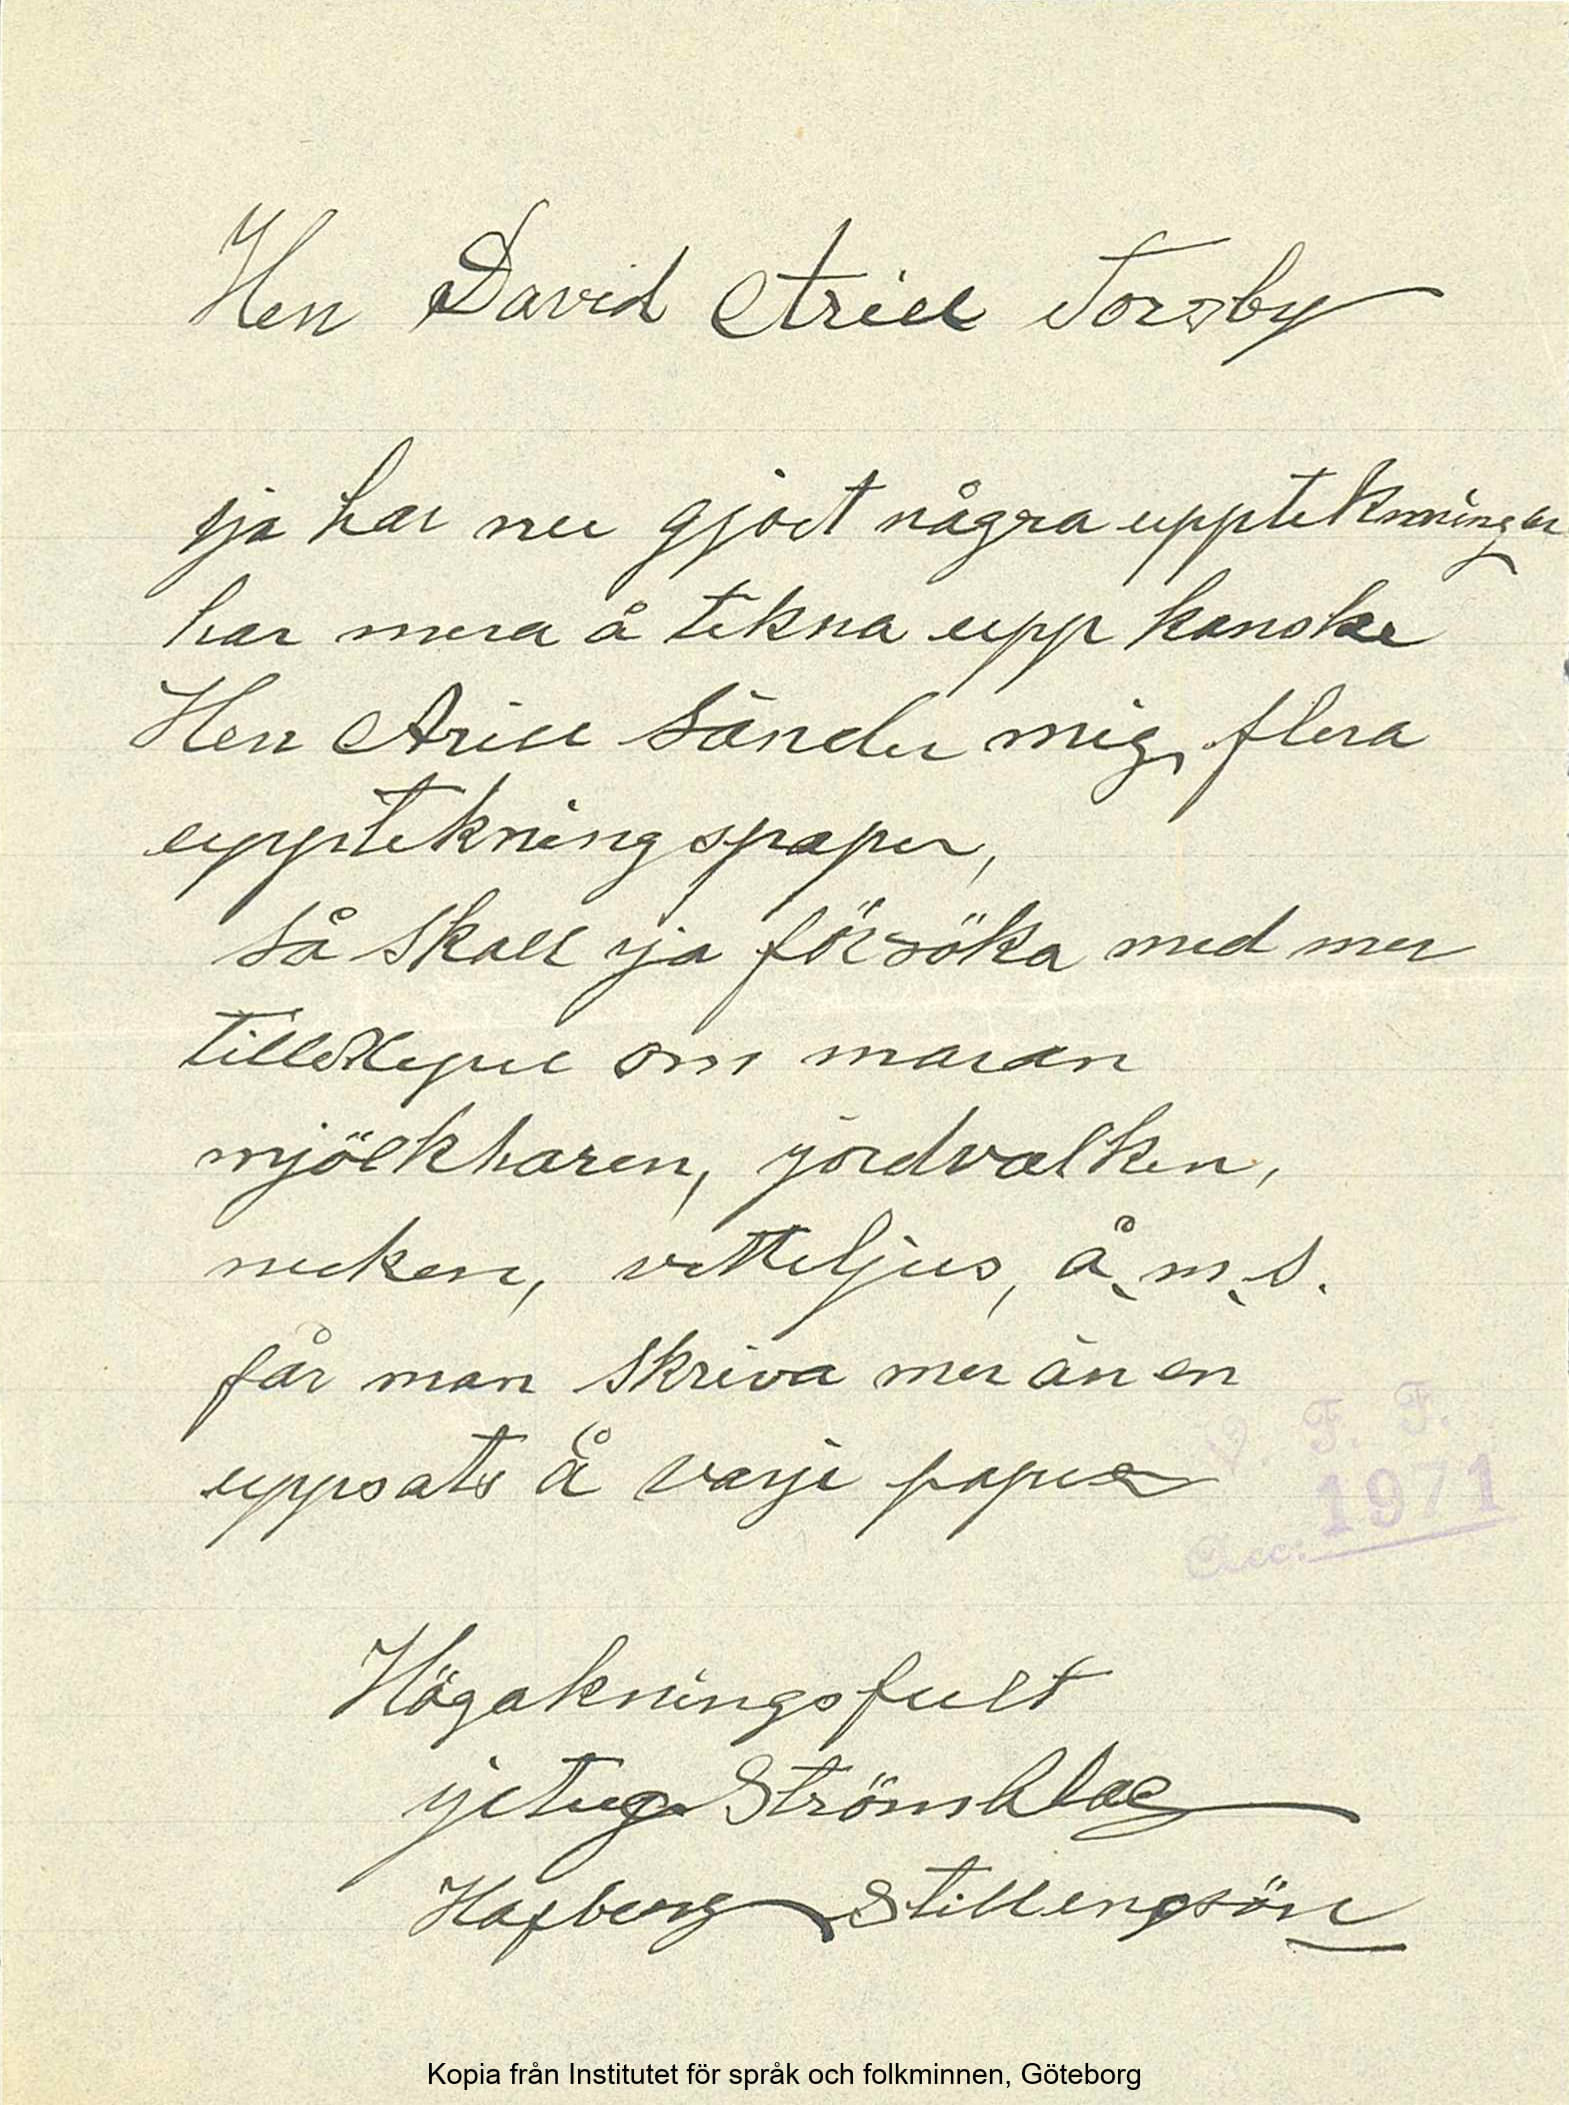 Herr David Arill Torsby
ja har nu gjort några uppteknningar
har mera å tekna upp kanske
Herr Arill sänder mig flera
uppteknings paper,
så skall ja försöka med mer
till om maran
mjölkharen, jordvalken,
necken, vitteljus, å.m.s.
får man skriva mer än en
uppsats å varje paper
V. F. F.
Acc. 1971
Högakningsfult
Strömblad
Hafberg Stillengsön
Kopia från Institutet för språk och folkminnen, Göteborg